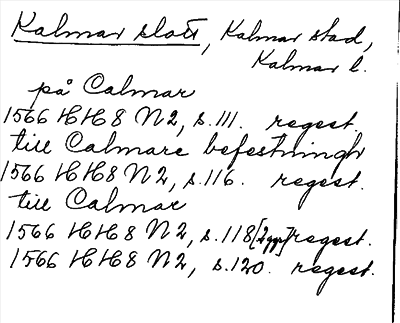 Kalmar slott, Kalmar stad,
Kalmar l.
på Calmar
1566 HH8 N2, s.111. regest.
till Calmare befestningh
1566 HH8 N2, s.116. regest.
till Calmar
1566 HH8 N2, s.118 [2 ggr] regest.
1566 HH8 N2, s.120. regest.